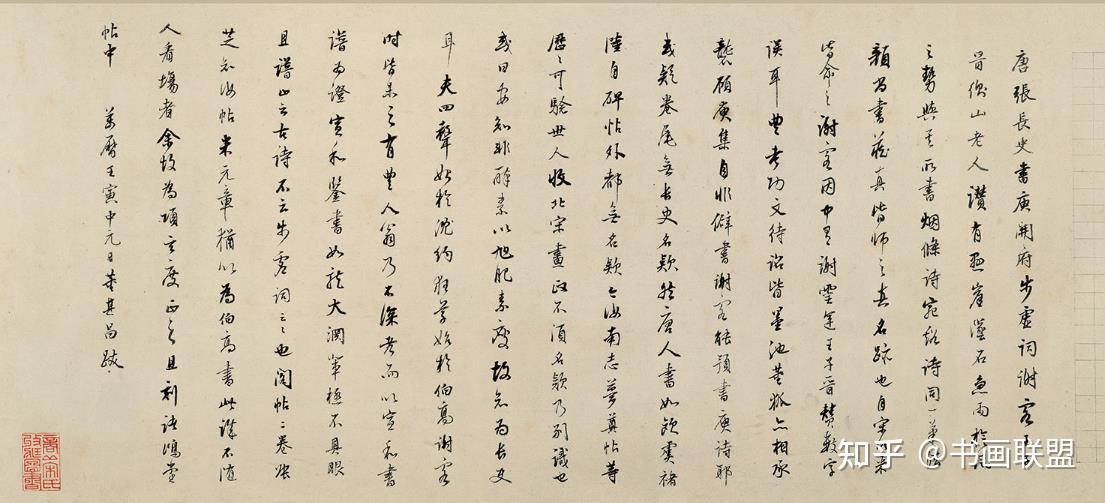 唐張長史書庾開府步虛詞謝客王子
晉衡山老人讚有懸崖墜石急雨旋風
之勢與其所書烟條詩宛谿詩同一筆法
顏尚書藏真皆師之真名跡也自宋以來
皆命之謝客因中有謝靈運王子晉贊數字
誤耳豐考功文待詔皆墨池董狐亦相承
襲顧庾集自非僻書謝客能預書庾詩耶
或疑卷尾無長史名款然唐人書如歐虞褚
陸自碑帖外都無名款今汝南志夢奠帖等
歷歷可驗世人收北宋畫政不須名款乃別識也
或曰安知非醉素以旭肥素瘦故知為長史
耳夫四聲始於沈約狂草始於伯高謝客
時皆未之有豐人翁乃不深考而以宣和書
譜為證宣和鑒書如龍大淵輩極不具眼
且譜止云古詩不云步虛詞云云也閣帖二卷張
芝知汝帖米元章猶以為伯高書此誄不隨
人看場者余故為項玄度正之且刻諸鴻堂
帖中 萬曆壬寅中元日董其昌跋
知乎 @书画联盟